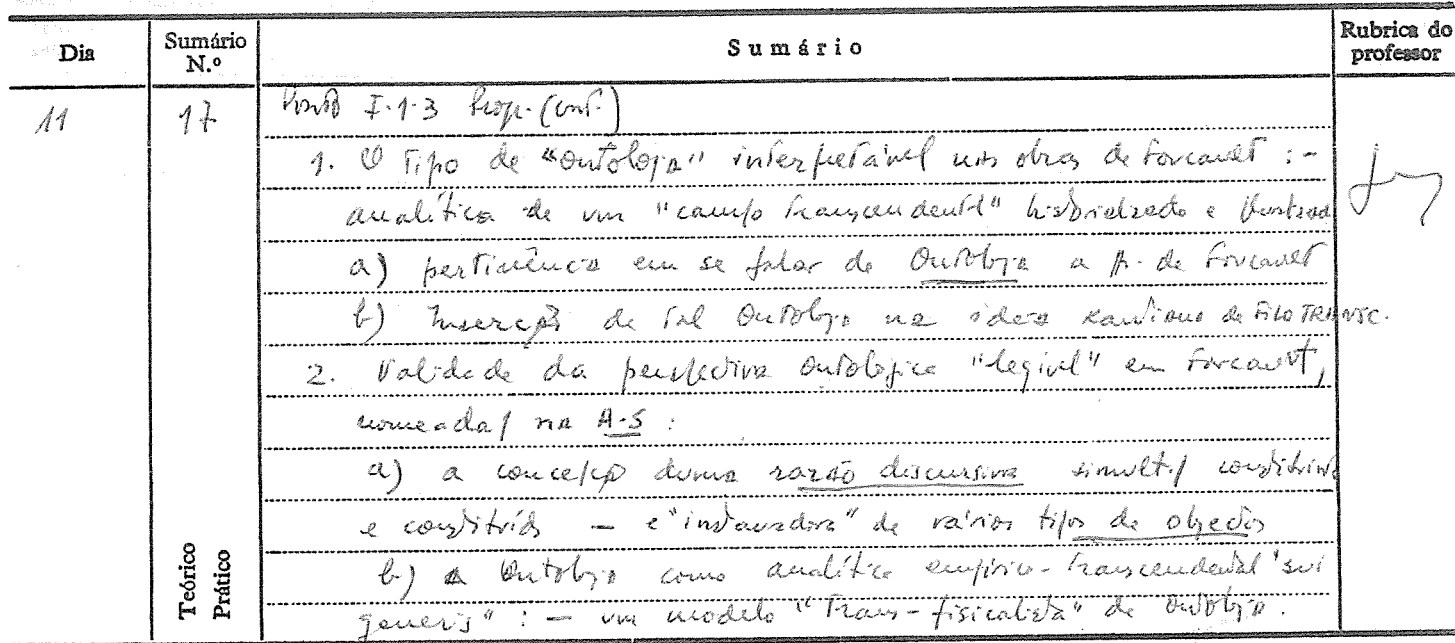 Dia Sumário N.º Sumário Rubrica do professor
11 17 Ponto I.1.3 Prop. (cont.)
1. O Tipo de "Ontologia" interpretável nas obras de Foucault : -
analítica de um "campo transcendental" historicizado e
a) pertinência em se falar de Ontologia a p. de Foucault
b) Inserção de tal Ontologia na ideia kantiana de FILO TRANSC.
2. Validade da perspectiva ontológica "legível" em Foucault,
nomeada/ na A-S :
a) a concepção duma razão discursiva simult./ constituinte
e constituída — e "instauradora" de vários tipos de objectos
b) a Ontologia como analítica empírico-transcendental "sui
generis" : — um modelo "Trans-fisicalista" de Ontologia.
Teórico
Prático